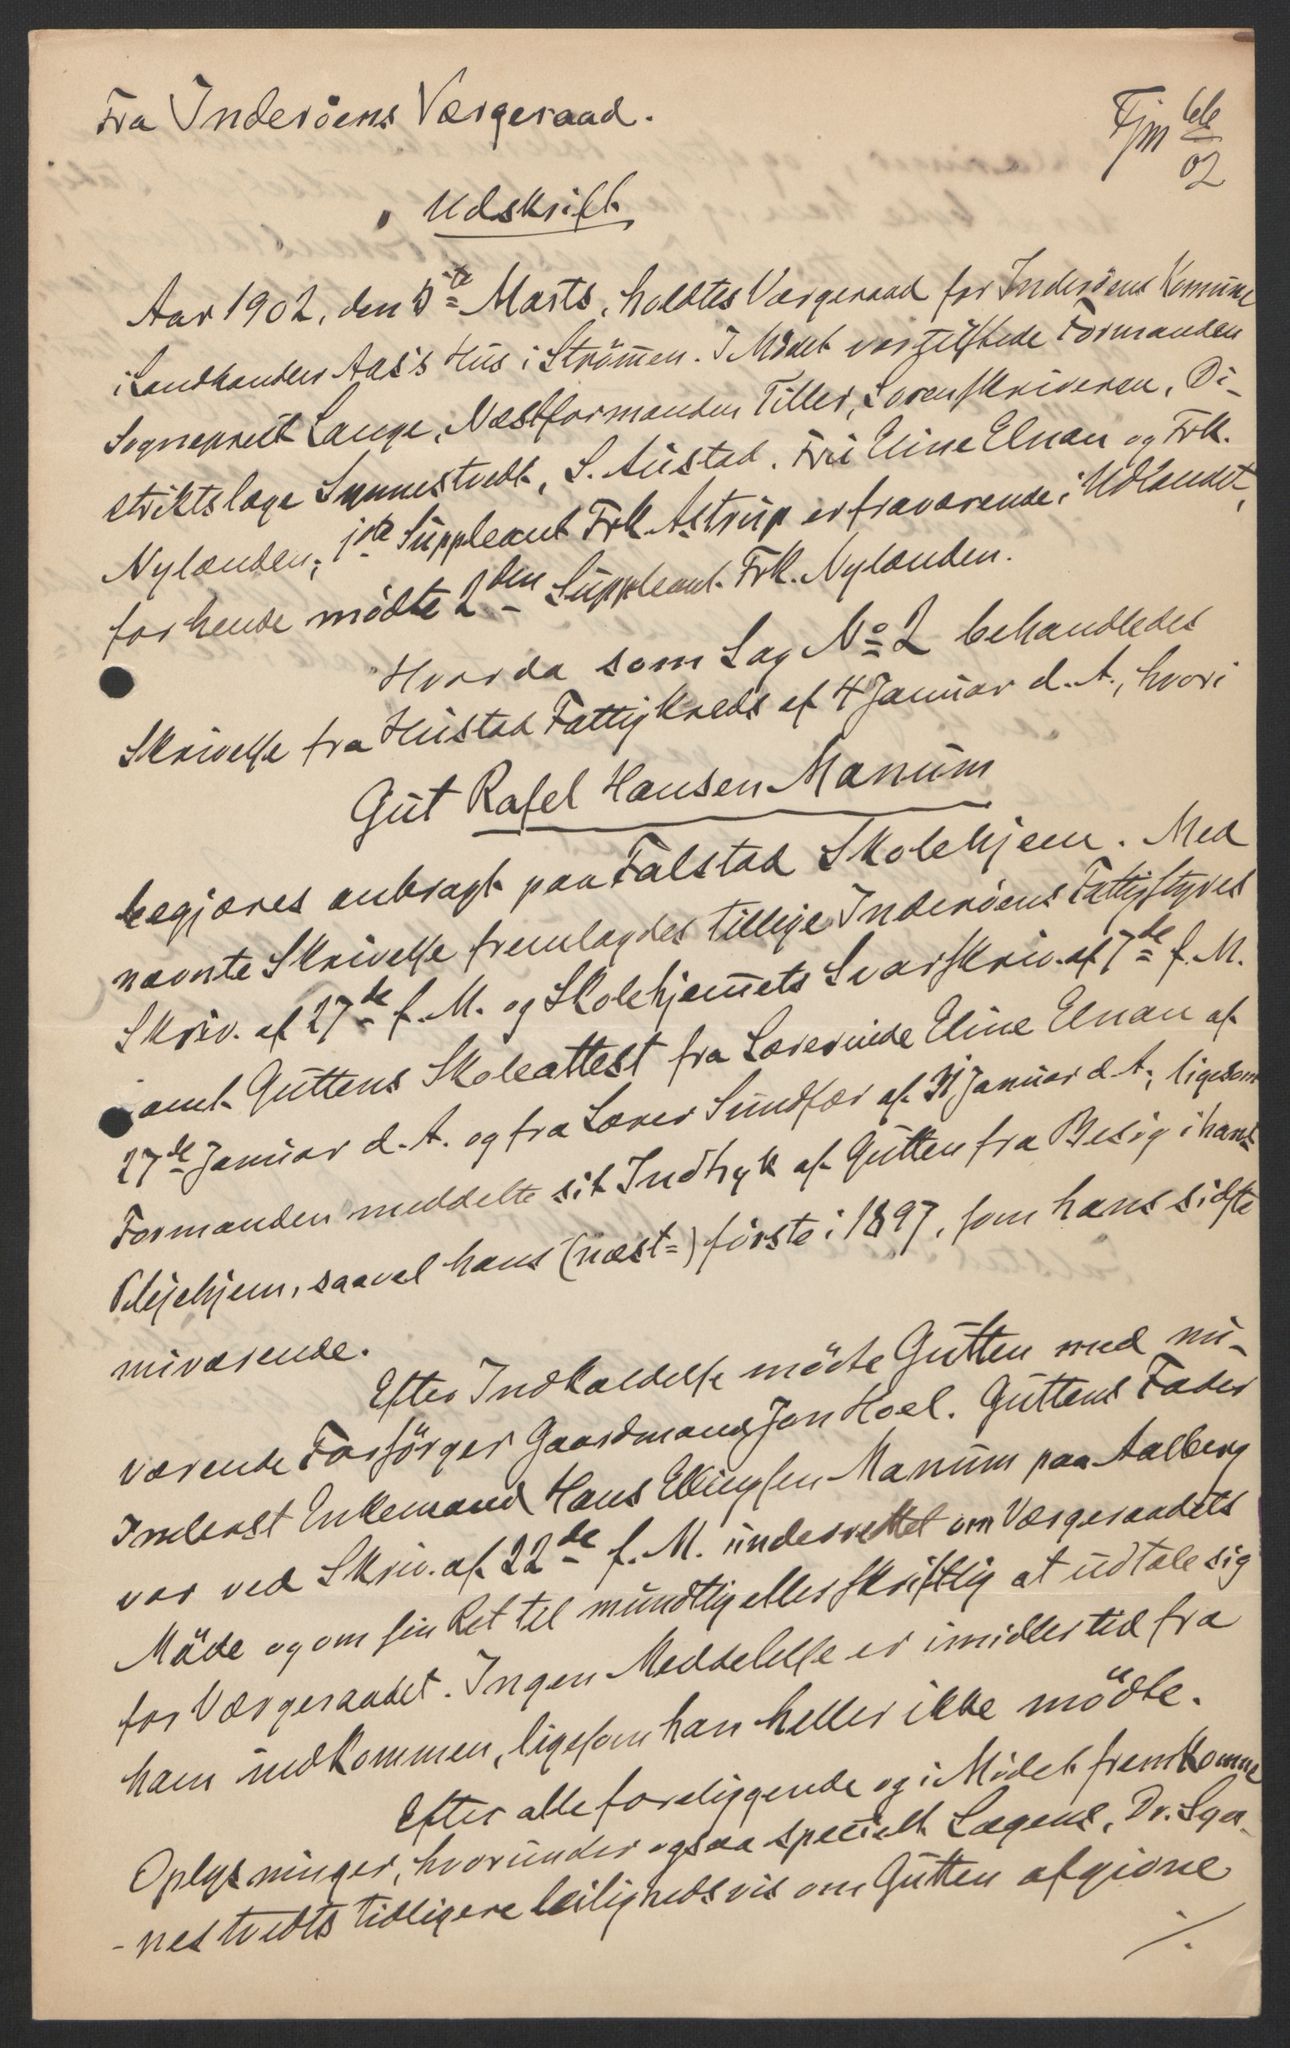 Fra Inderöens Værgeraad.
Fjm 66/02
Udskrift
Aar 1902, den 5te Marts, holdtes Værgeraad for Inderöens Komune
i Landhandler Aas's Hus i Strömen. I Mødet var tilstede Formanden
Sogneprest Lange, Næstformanden Tiller, Sorenskriveren, Di-
striktslæge Synnestvedt, S. Austad. Fru Eline Elnan og Frk.
Nylænden; 1ste Suppleant Frk. Astrup er fraværende i Udlandet,
for hende mödte 2den Suppleant Frk. Nylænden.
Hvorda som Sag No 2 behandledes
Skrivelse fra Hustad Fattigkreds af 4 Januar d. A., hvori
Gut Rafel Hansen Manum
begjæres anbragt paa Falstad Skolehjem. Med
nævnte Skrivelse fremlagdes tillige Inderöens Fattigstyres
Skriv. af 27de f. M. og Skolehjemets Svarskriv. af 7de f. M.
samt Guttens Skoleattest fra Lærerinde Eline Elnan af
27de Januar d. A. og fra Lærer Sundfær af 31 Januar d. A., ligesom
Formanden meddelte sit Indtryk af Gutten fra Besög i hans
Plejehjem, saavel hans (næst=) förste i 1897, som hans sidste
nuværende.
Efter Indkaldelse mödte Gutten med nu-
værende Forsörger Gaardmand Jon Hoel. Guttens Fader
Inderst Enkemand Hans Ellingsen Manum paa Aalberg
var ved Skriv. af 22de f. M. underrettet om Værgeraadets
Möde og om sin Ret til mundtlig eller skriftlig at udtale sig
for Værgeraadet. Ingen Meddelelse er imidlertid fra
ham indkommen, ligesom han heller ikke mödte.
Efter alle foreliggende og i Mödet fremkomne
Oplysninger, hvorunder ogsaa specielt Lægens, Dr. Syn-
-nestvedts tidligere leilighedsvis om Gutten afgivne
./.